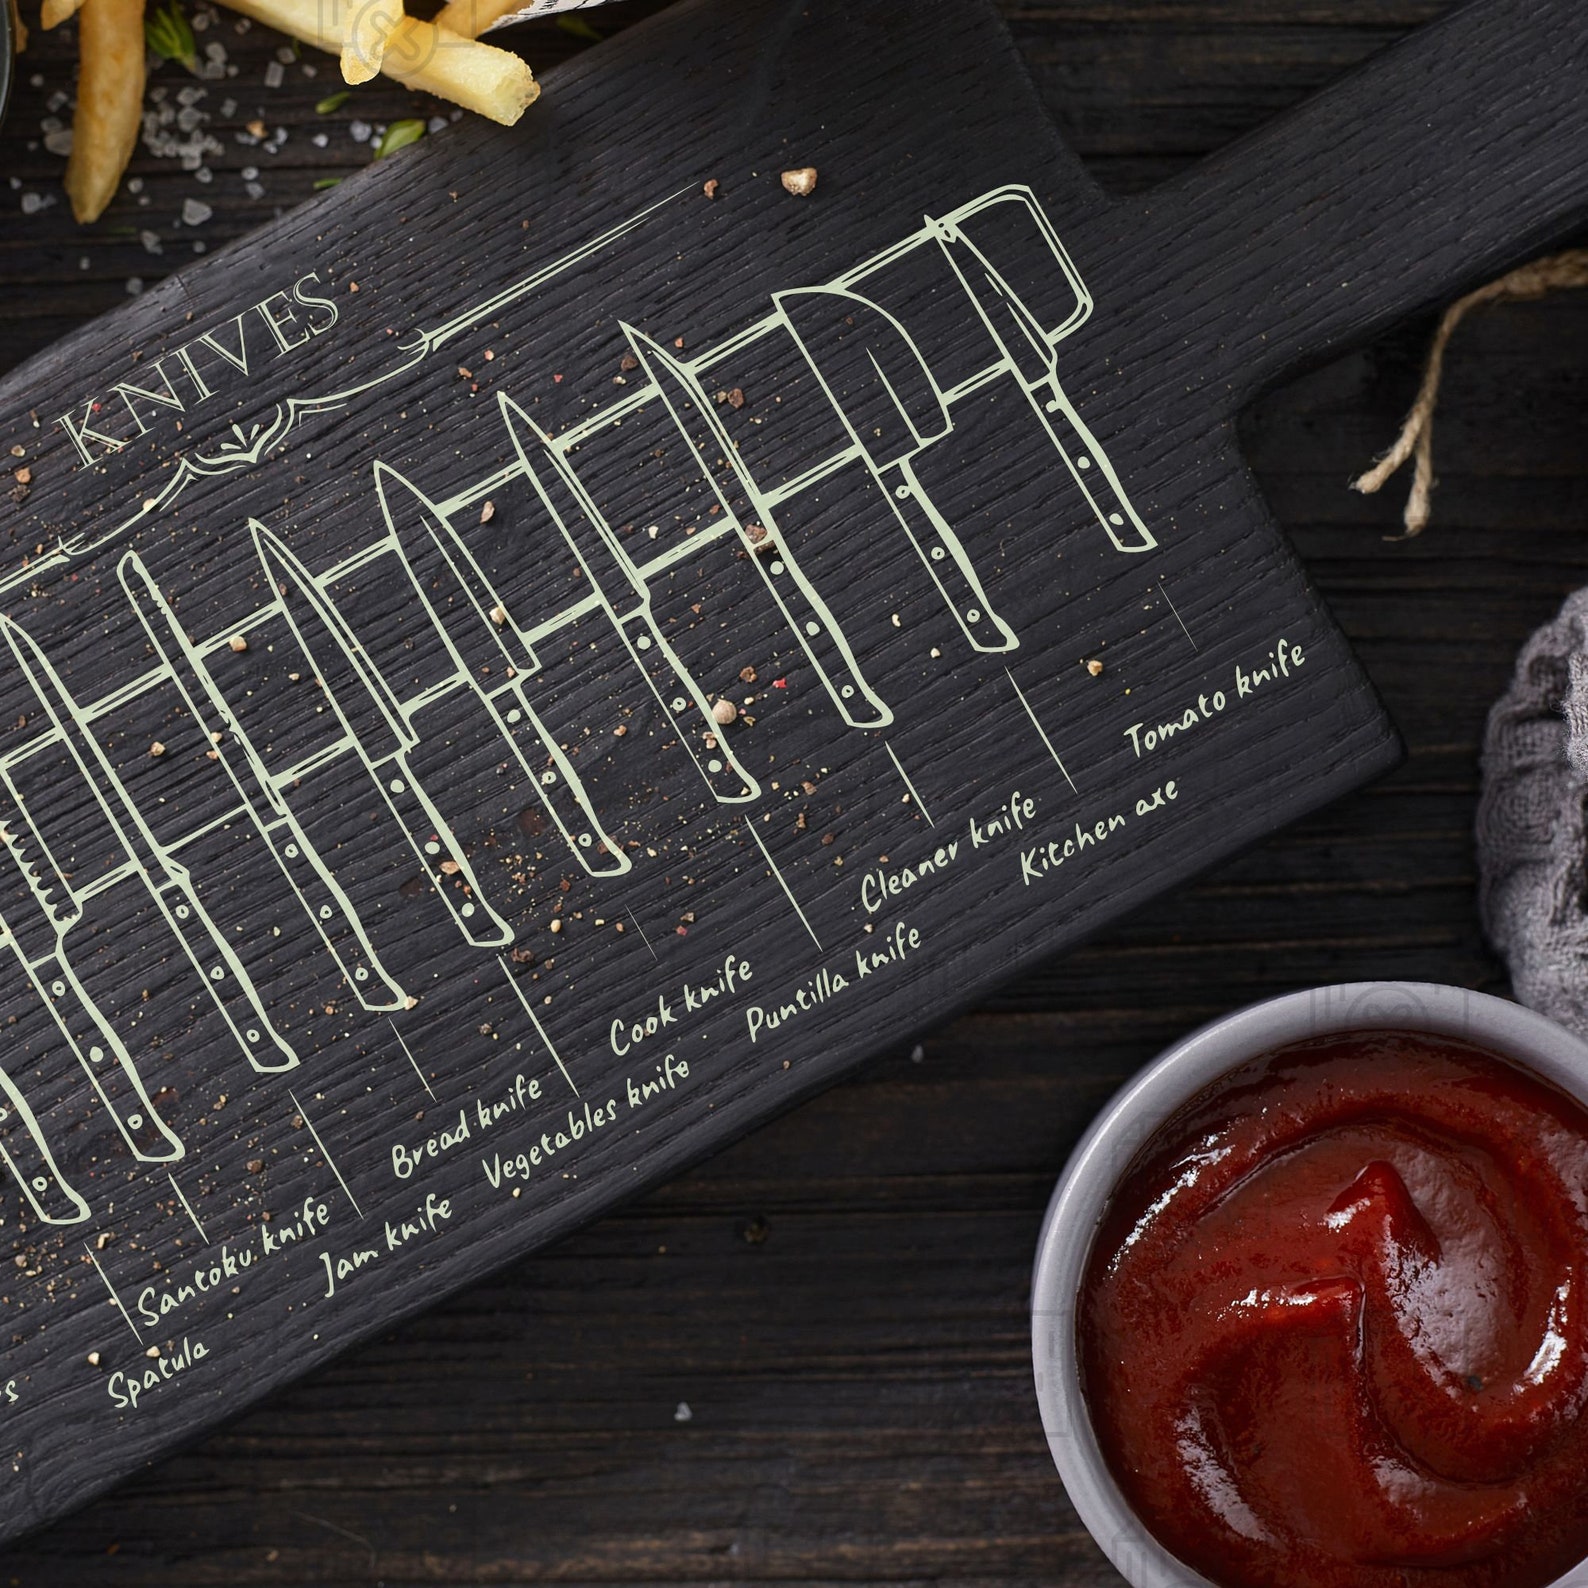 KNIVES
Tomato knife
Kitchen axe
Cleaner knife
Puntilla knife
Cook knife
Vegetables knife
Bread knife
Jam knife
Santoku knife
Spatula